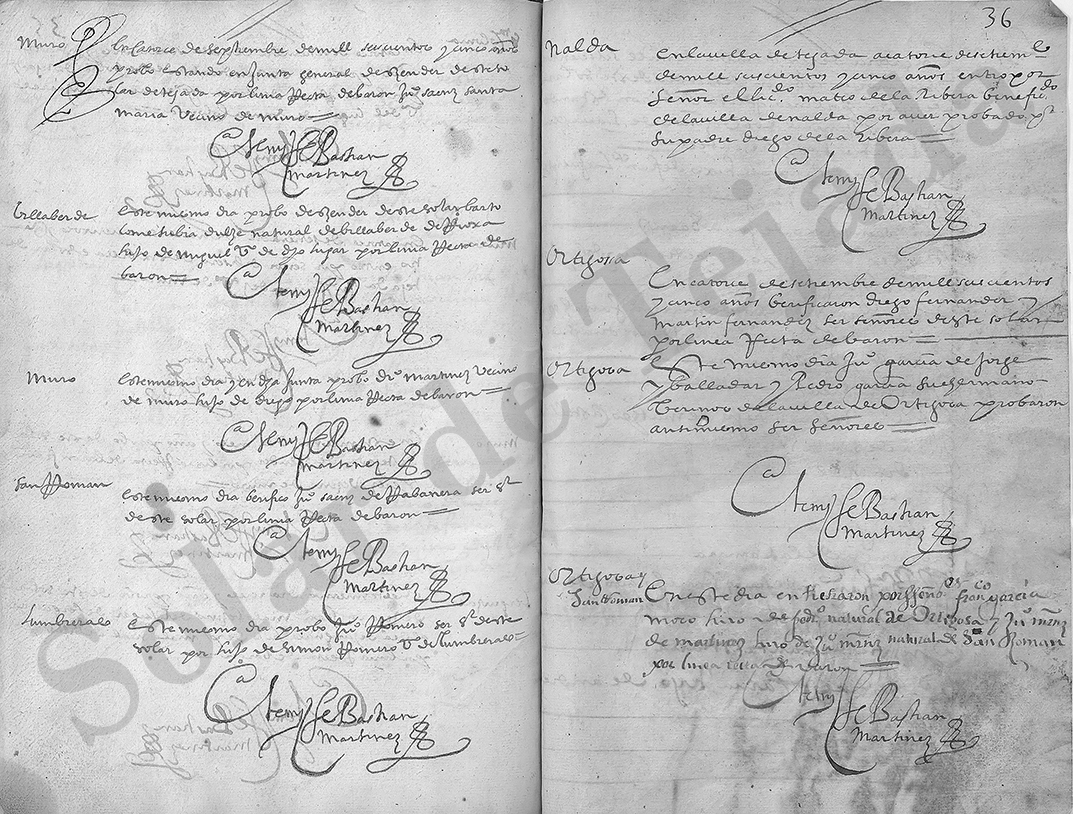 Muro
En catorce de septiembre de mill seiscientos y cinco años
probo estando en junta general decender deste so
lar de tejada por linia Recta de baron Juº saenz santa
maria Vecino de muro
Ante my Sebastian
martinez
Villaberde
Este mismo dia probo decender deste solar barto
lome rubia natural de billaberde de Rioxa
hijo de miguel Vº de dho lugar por linia Recta de
baron
Ante my Sebastian
martinez
Muro
Este mismo dia y en dha Junta probo martinez Vecino
de muro hijo de diego por linia Recta de baron
Ante my Sebastian
martinez
San Roman
Este mismo dia berifico Juº saenz de Rabanera ser sr
de este solar por linia Recta de baron
Ante my Sebastian
Martinez
Lumbreras
Este mismo dia probo Juº Romero ser sr deste
solar por hijo de simon Romero Vº de lumbreras
Ante my Sebastian
Martinez
36
Nalda
En la villa de tejada a catorce de setiembre
de mill seiscientos y cinco años entro por
señor el licdo mateo de la Ribera benefido
de la villa de nalda por aver probado
su padre diego de la Ribera
Ante my Sebastian
Martinez
Ortigossa
En catorce de setiembre de mill seiscientos
y cinco años berificaron diego fernandez y
Martin fernandez ser señores deste solar
por linea Recta de baron
Ortigosa
Este mismo dia Juº garcia de Jorge
y balladar y Pedro garcia su hermano
Vecinos de la villa de Ortigosa probaron
ansimismo ser señores
Ante my Sebastian
Martinez
Ortigosa y
San Roman
En este dia entraron por señores franco garcia
moco hijo de natural de Ortigosa y Juº mrnz
de martinez hijo de Juº mrnz natural de San Roman
por linea recta de baron
Ante my Sebastian
Martinez
Solar de Tejada